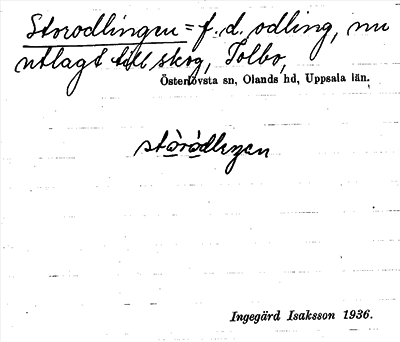 Storodlingen = f. d. odling, nu
utlagt till skog, Tolbo,
Österlövsta sn, Olands hd, Uppsala län.
stòródlingen
Ingegärd Isaksson 1936.